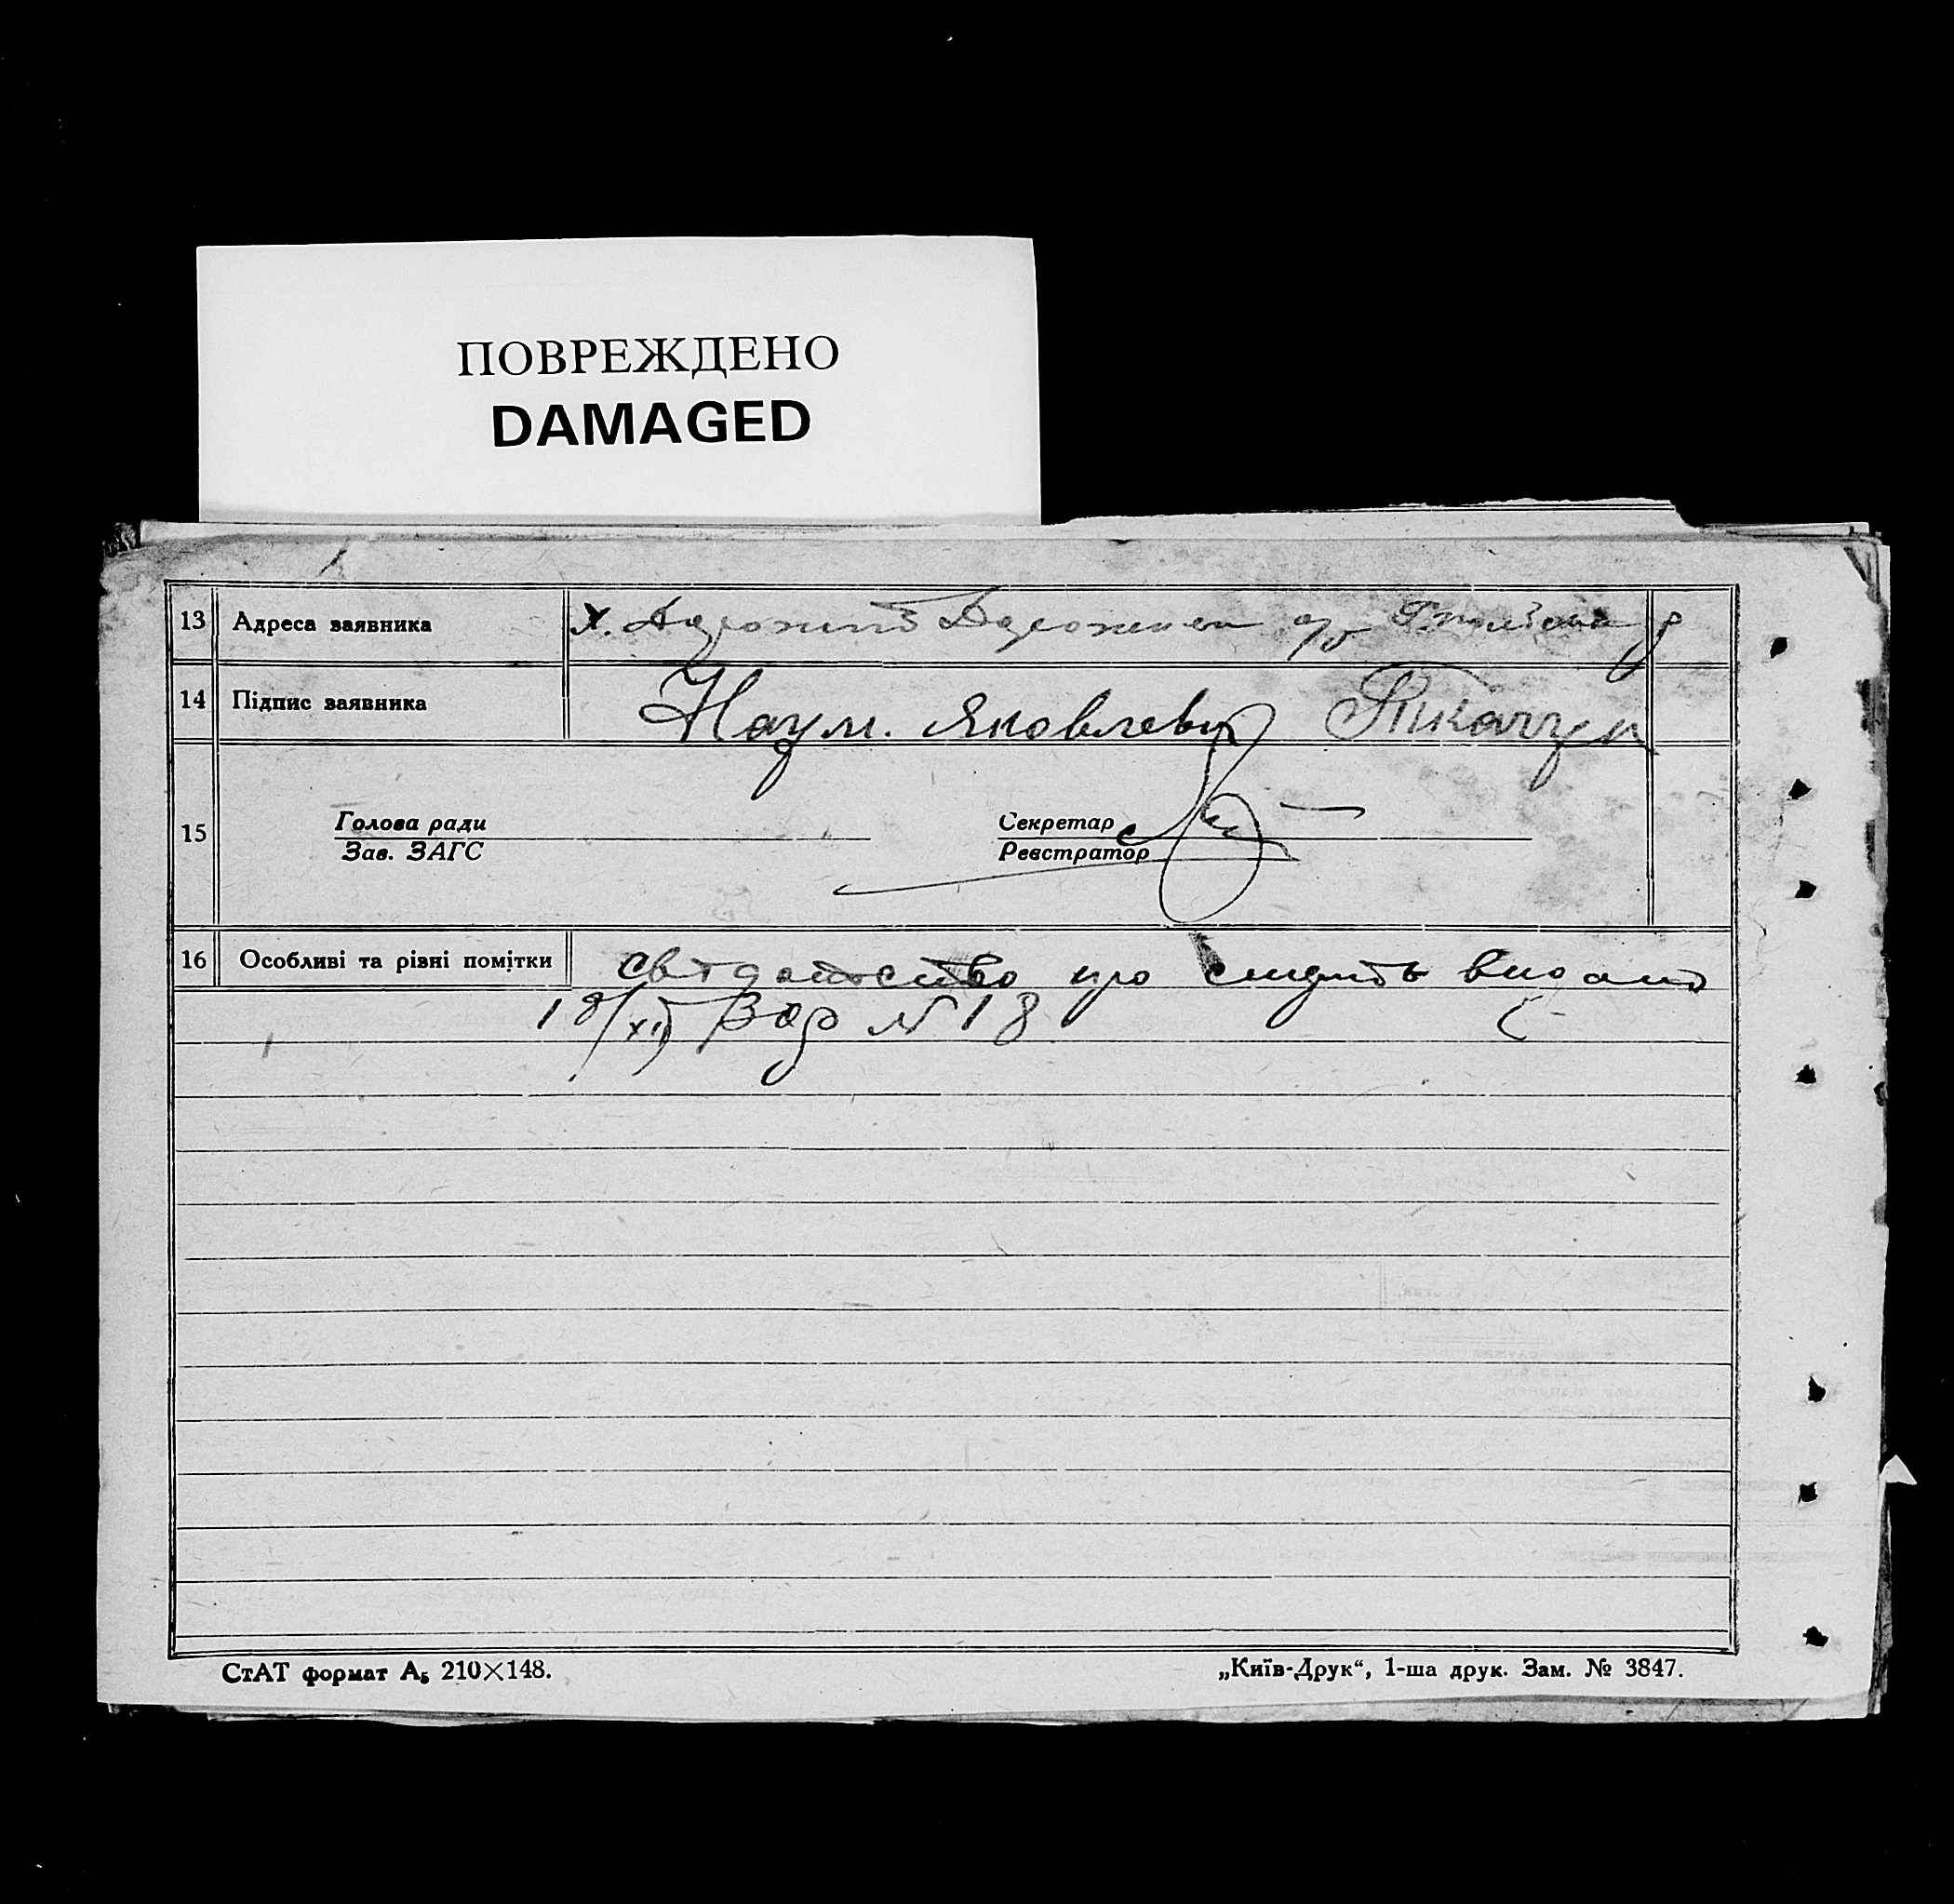 ПОВРЕЖДЕНО
DAMAGED
13 Адреса заявника х.
14 Підпис заявника Наум. Яковлевич Ткачук
Голова ради Секретар
15
Зав. ЗАГС Реєстратор
16 Особливі та різні помітки свідотство про смерть видано
18/XII N 18
СтАТ формат А5 210×148. „Київ-Друк“, 1-ша друк. Зам. № 3847.